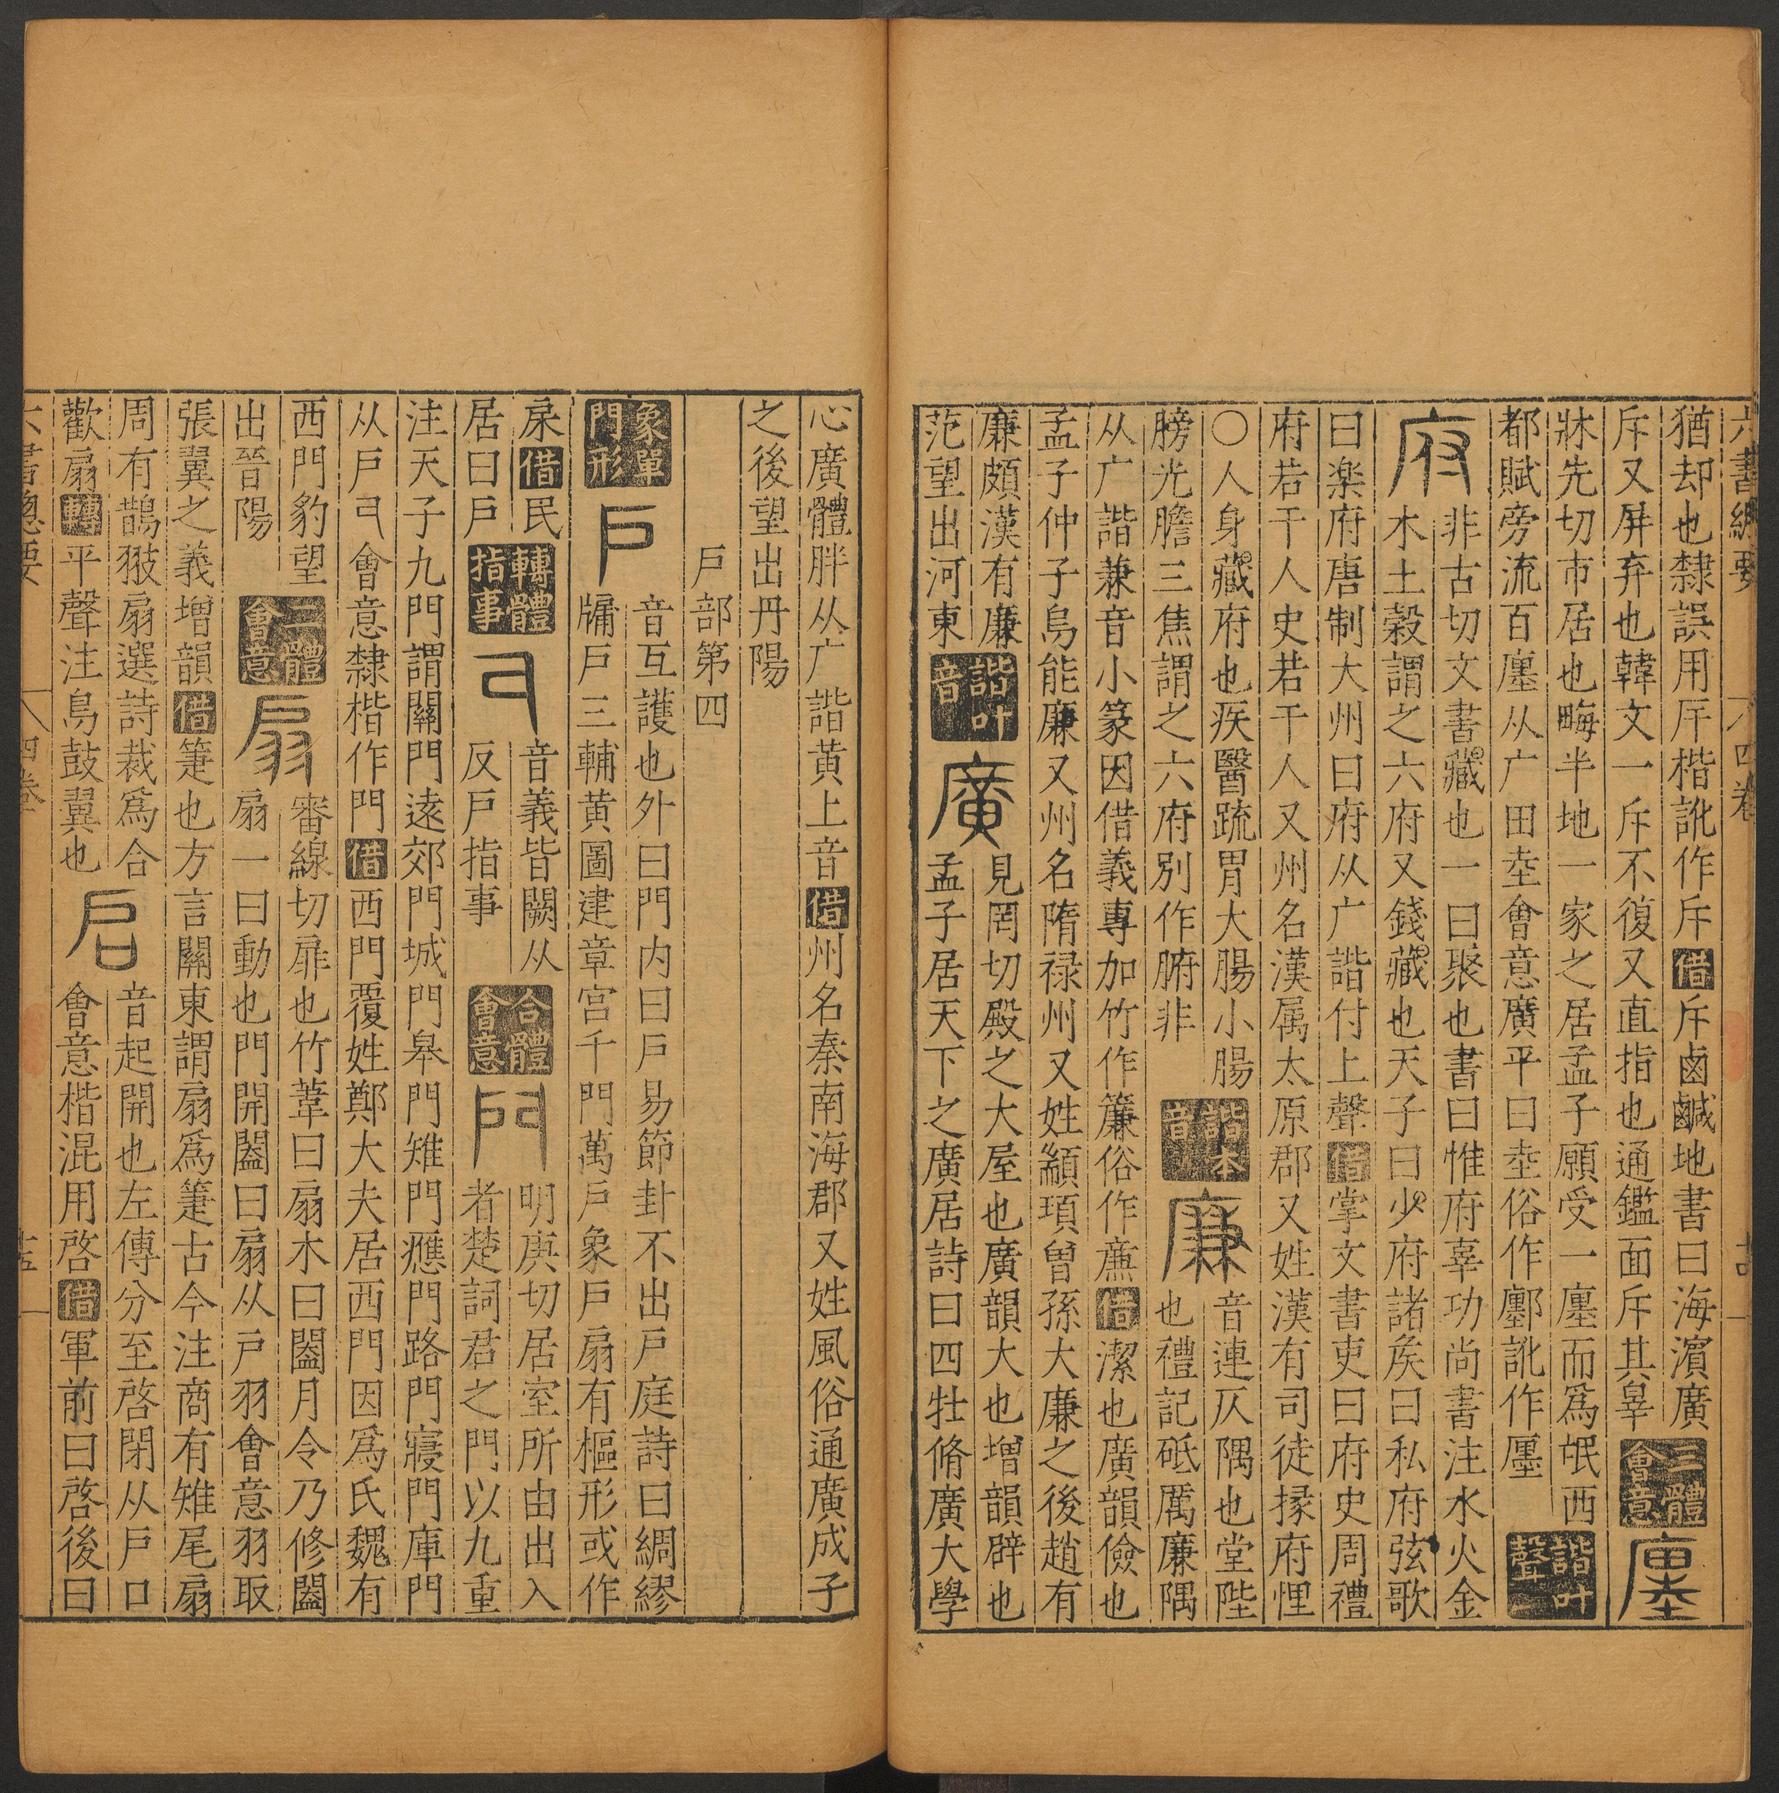 六書總要 四卷 十四
猶却也隸誤用㡿楷訛作斥借斥鹵鹹地書曰海濱廣
斥又屏弃也韓文一斥不復又直指也通鑑面斥其辠
三體會意
廛
牀先切市居也畮半地一家之居孟子願受一廛而爲氓西
都賦旁流百廛从广田坴會意廣平曰坴俗作鄽訛作㕓
諧叶聲
府
非古切文書藏也一曰聚也書曰惟府辜功尚書注水火金
木土穀謂之六府又錢藏也天子曰少府諸矦曰私府弦歌
曰楽府唐制大州曰府从广諧付上聲借掌文書吏曰府史周禮
府若干人史若干人又州名漢属太原郡又姓漢有司徒掾府悝
○人身藏府也疾醫疏胃大腸小腸
膀光膽三焦謂之六府別作腑非
諧本音
廉
音連仄隅也堂陛
也禮記砥厲廉隅
从广諧兼音小篆因借義專加竹作簾俗作亷借潔也廣韻儉也
孟子仲子烏能廉又州名隋禄州又姓顓頊曾孫大廉之後趙有
廉頗漢有廉
范望出河東
諧叶音
廣
見罔切殿之大屋也廣韻大也增韻辟也
孟子居天下之廣居詩曰四牡脩廣大學
心廣體胖从广諧黃上音借州名秦南海郡又姓風俗通廣成子
之後望出丹陽
戶部第四
象單門形
戶
音互護也外曰門内曰戶易節卦不出戶庭詩曰綢繆
牖戶三輔黃圖建章宫千門萬戶象戶扇有樞形或作
㦿借民
居曰戶
轉體指事
音義皆闕从
反戶指事
合體會意
門
明庚切居室所由出入
者楚詞君之門以九重
注天子九門謂關門遠郊門城門皋門雉門應門路門寢門庫門
从戶會意隸楷作門借西門覆姓鄭大夫居西門因爲氏魏有
西門豹望
出晉陽
二體會意
扇
審線切扉也竹葦曰扇木曰闔月令乃修闔
扇一曰動也門開闔曰扇从戶羽會意羽取
張翼之義增韻借箑也方言關東謂扇爲箑古今注商有雉尾扇
周有鵲翣扇選詩裁爲合
歡扇轉平聲注鳥鼓翼也
启
音起開也左傳分至啓閉从戶口
會意楷混用啓借軍前曰啓後曰
六書總要 四卷 十五